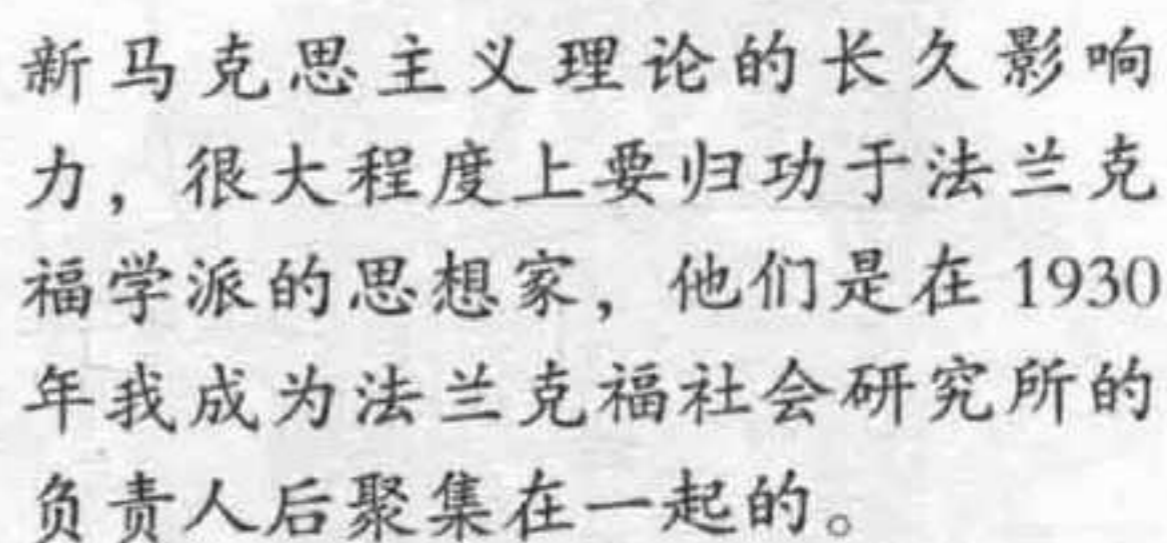 新马克思主义理论的长久影响
力，很大程度上要归功于法兰克
福学派的思想家，他们是在 1930
年我成为法兰克福社会研究所的
负责人后聚集在一起的。